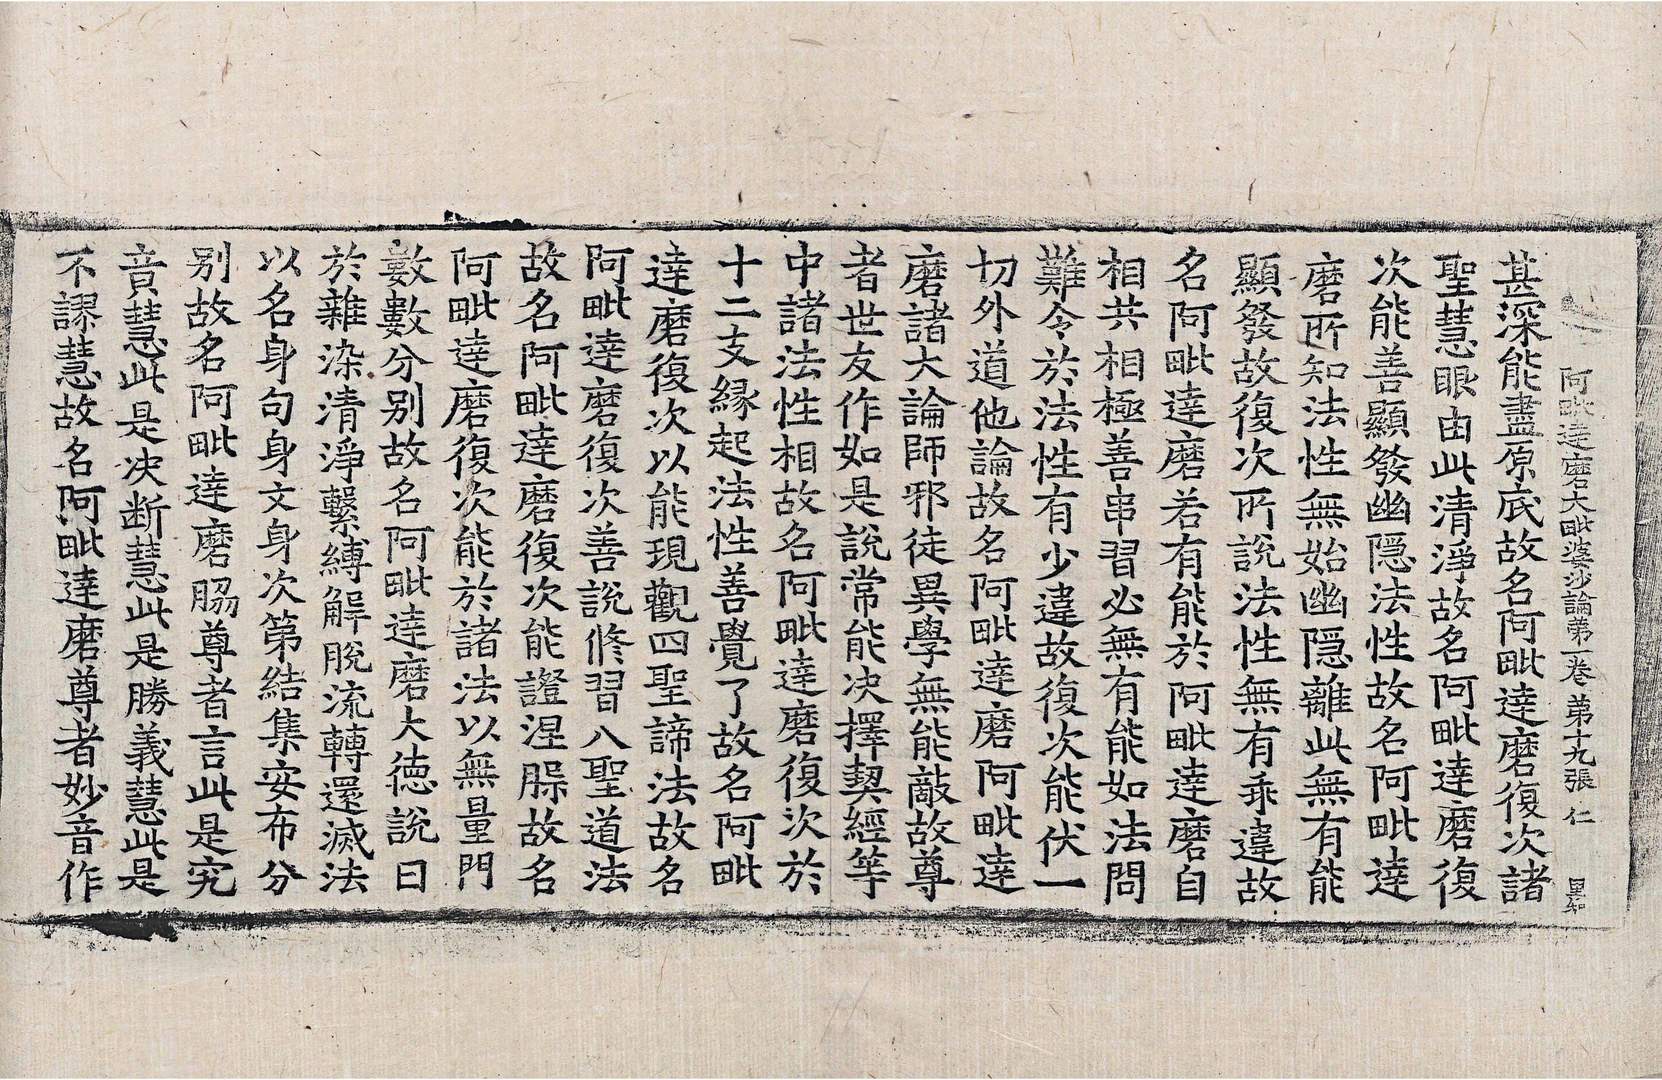 阿毗達磨大毗婆沙論第一卷 第十九張 仁
甚深能盡原底故名阿毗達磨復次諸
聖慧眼由此清淨故名阿毗達磨復
次能善顯發幽隱法性故名阿毗達
磨所知法性無始幽隱離此無有能
顯發故復次所說法性無有乖違故
名阿毗達磨若有能於阿毗達磨自
相共相極善串習必無有能如法問
難令於法性有少違故復次能伏一
切外道他論故名阿毗達磨阿毗達
磨諸大論師邪徒異學無能敵故尊
者世友作如是說常能决擇契經等
中諸法性相故名阿毗達磨復次於
十二支緣起法性善覺了故名阿毗
達磨復次以能現觀四聖諦法故名
阿毗達磨復次善說修習八聖道法
故名阿毗達磨復次能證涅槃故名
阿毗達磨復次能於諸法以無量門
數數分別故名阿毗達磨大德說曰
於雜染清淨繫縛解脫流轉還滅法
以名身句身文身次第結集安布分
別故名阿毗達磨脇尊者言此是究
竟慧此是决断慧此是勝義慧此是
不謬慧故名阿毗達磨尊者妙音作